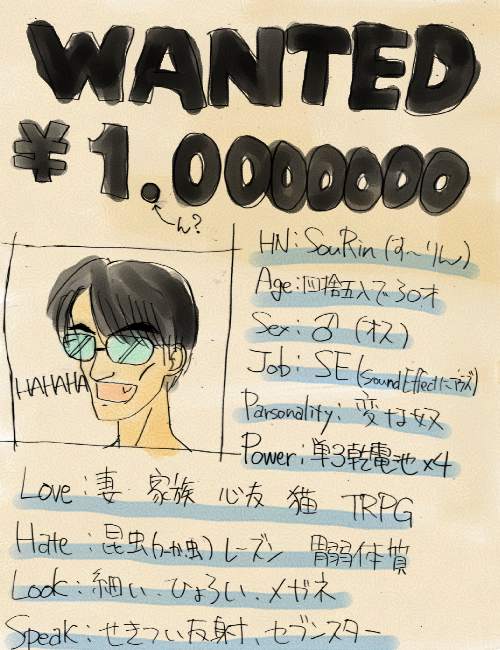 WANTED
¥1.0000000
ん?
HAHAHA
HN:SouRin(すーりん)
Age:四捨五入で30才
Sex:♂(オス)
Job:SE(SoundEffectにあらズ)
Parsonality:変な奴
Power:単3乾電池×4
Love:妻 家族 心友 猫 TRPG
Hate:昆虫(つーか虫)レーズン 胃弱体質
Look:細い.ひょろい.メガネ
Speak:せきつい反射、セブンスター